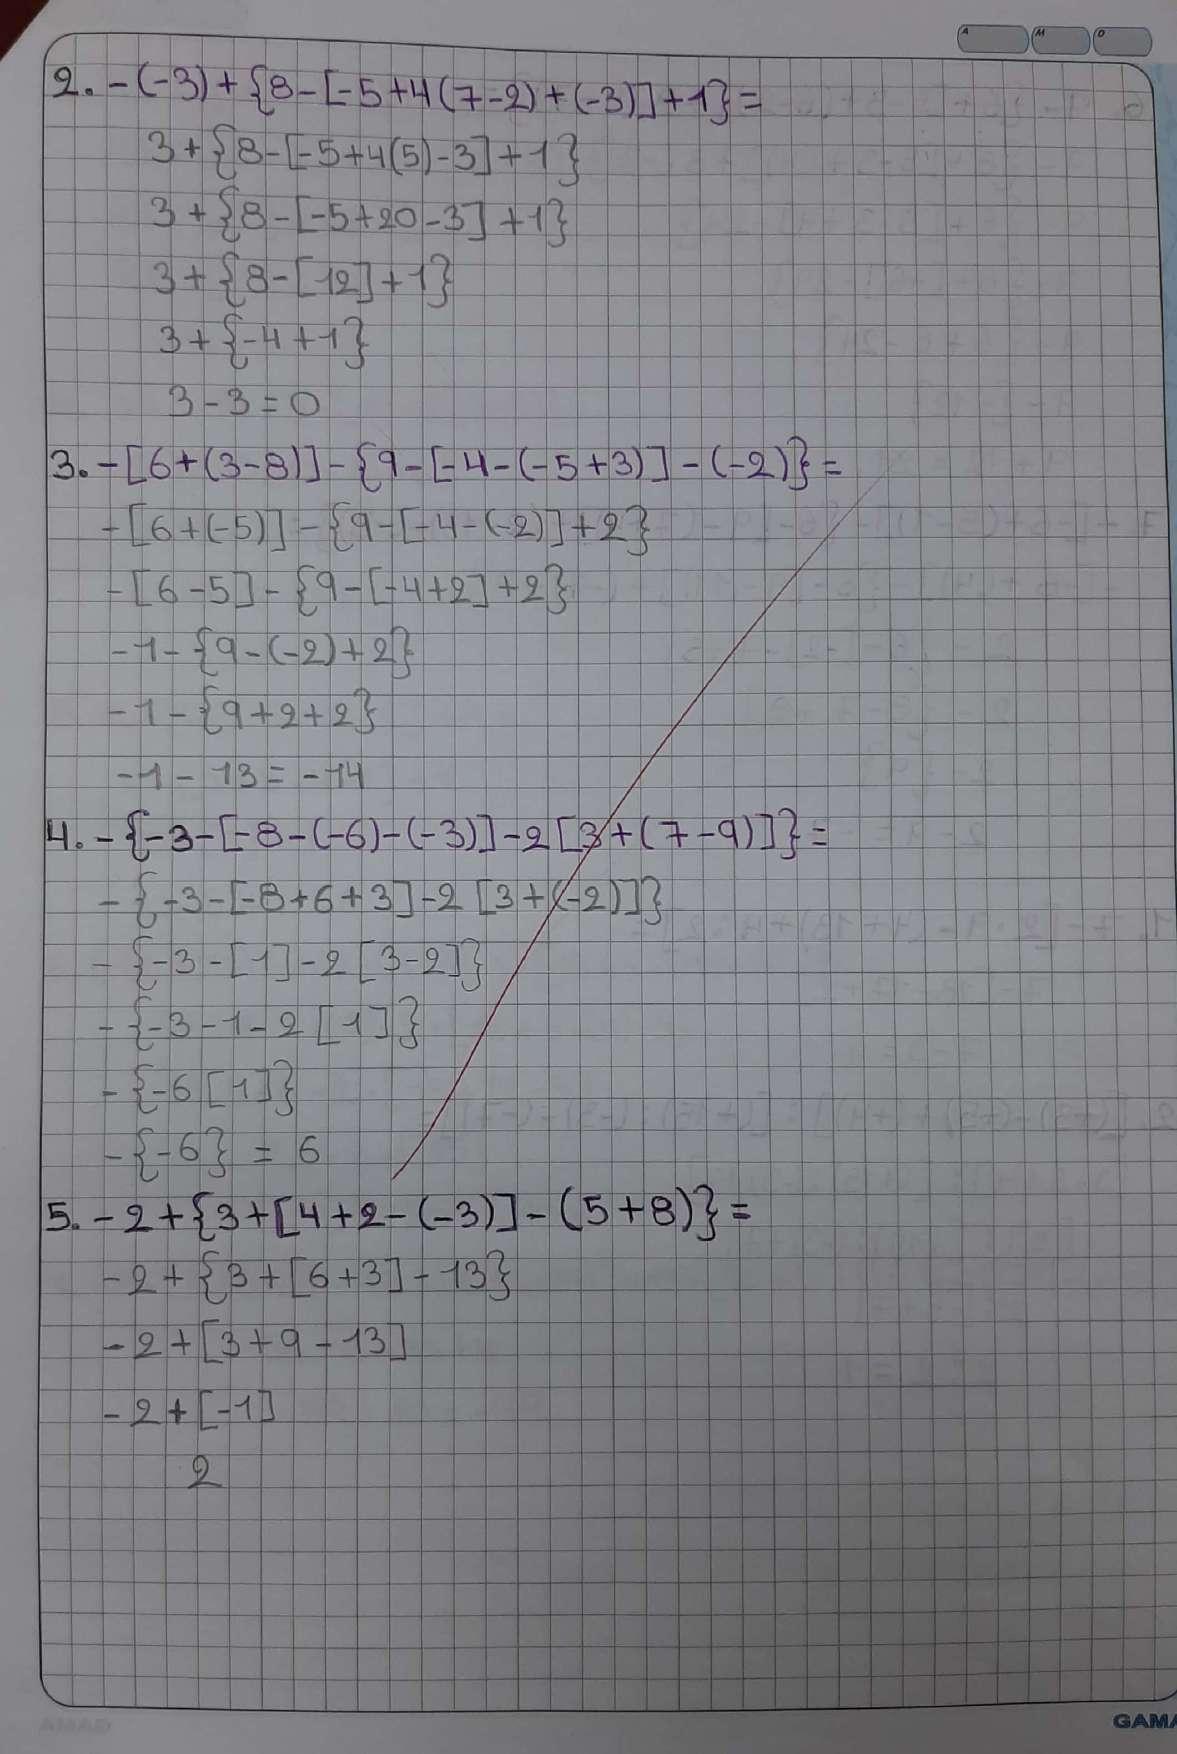 A M D
2. -(-3) + {8-[-5+4(7-2)+(-3)]+1} =
3+{8-[-5+4(5)-3]+1}
3+{8-[-5+20-3]+1}
3+{8-[12]+1}
3+{-4+1}
3-3=0
3. -[6+(3-8)]-{9-[-4-(-5+3)]-(-2)} =
-[6+(-5)]-{9-[-4-(-2)]+2}
-[6-5]-{9-[-4+2]+2}
-1-{9-(-2)+2}
-1-{9+2+2}
-1-13=-14
4. -{-3-[-8-(-6)-(-3)]-2[3+(7-9)]} =
-{-3-[-8+6+3]-2[3+(-2)]}
-{-3-[1]-2[3-2]}
-{-3-1-2[1]}
-{-6[1]}
-{-6} = 6
5. -2+{3+[4+2-(-3)]-(5+8)} =
-2+{3+[6+3]-13}
-2+[3+9-13]
-2+[-1]
2